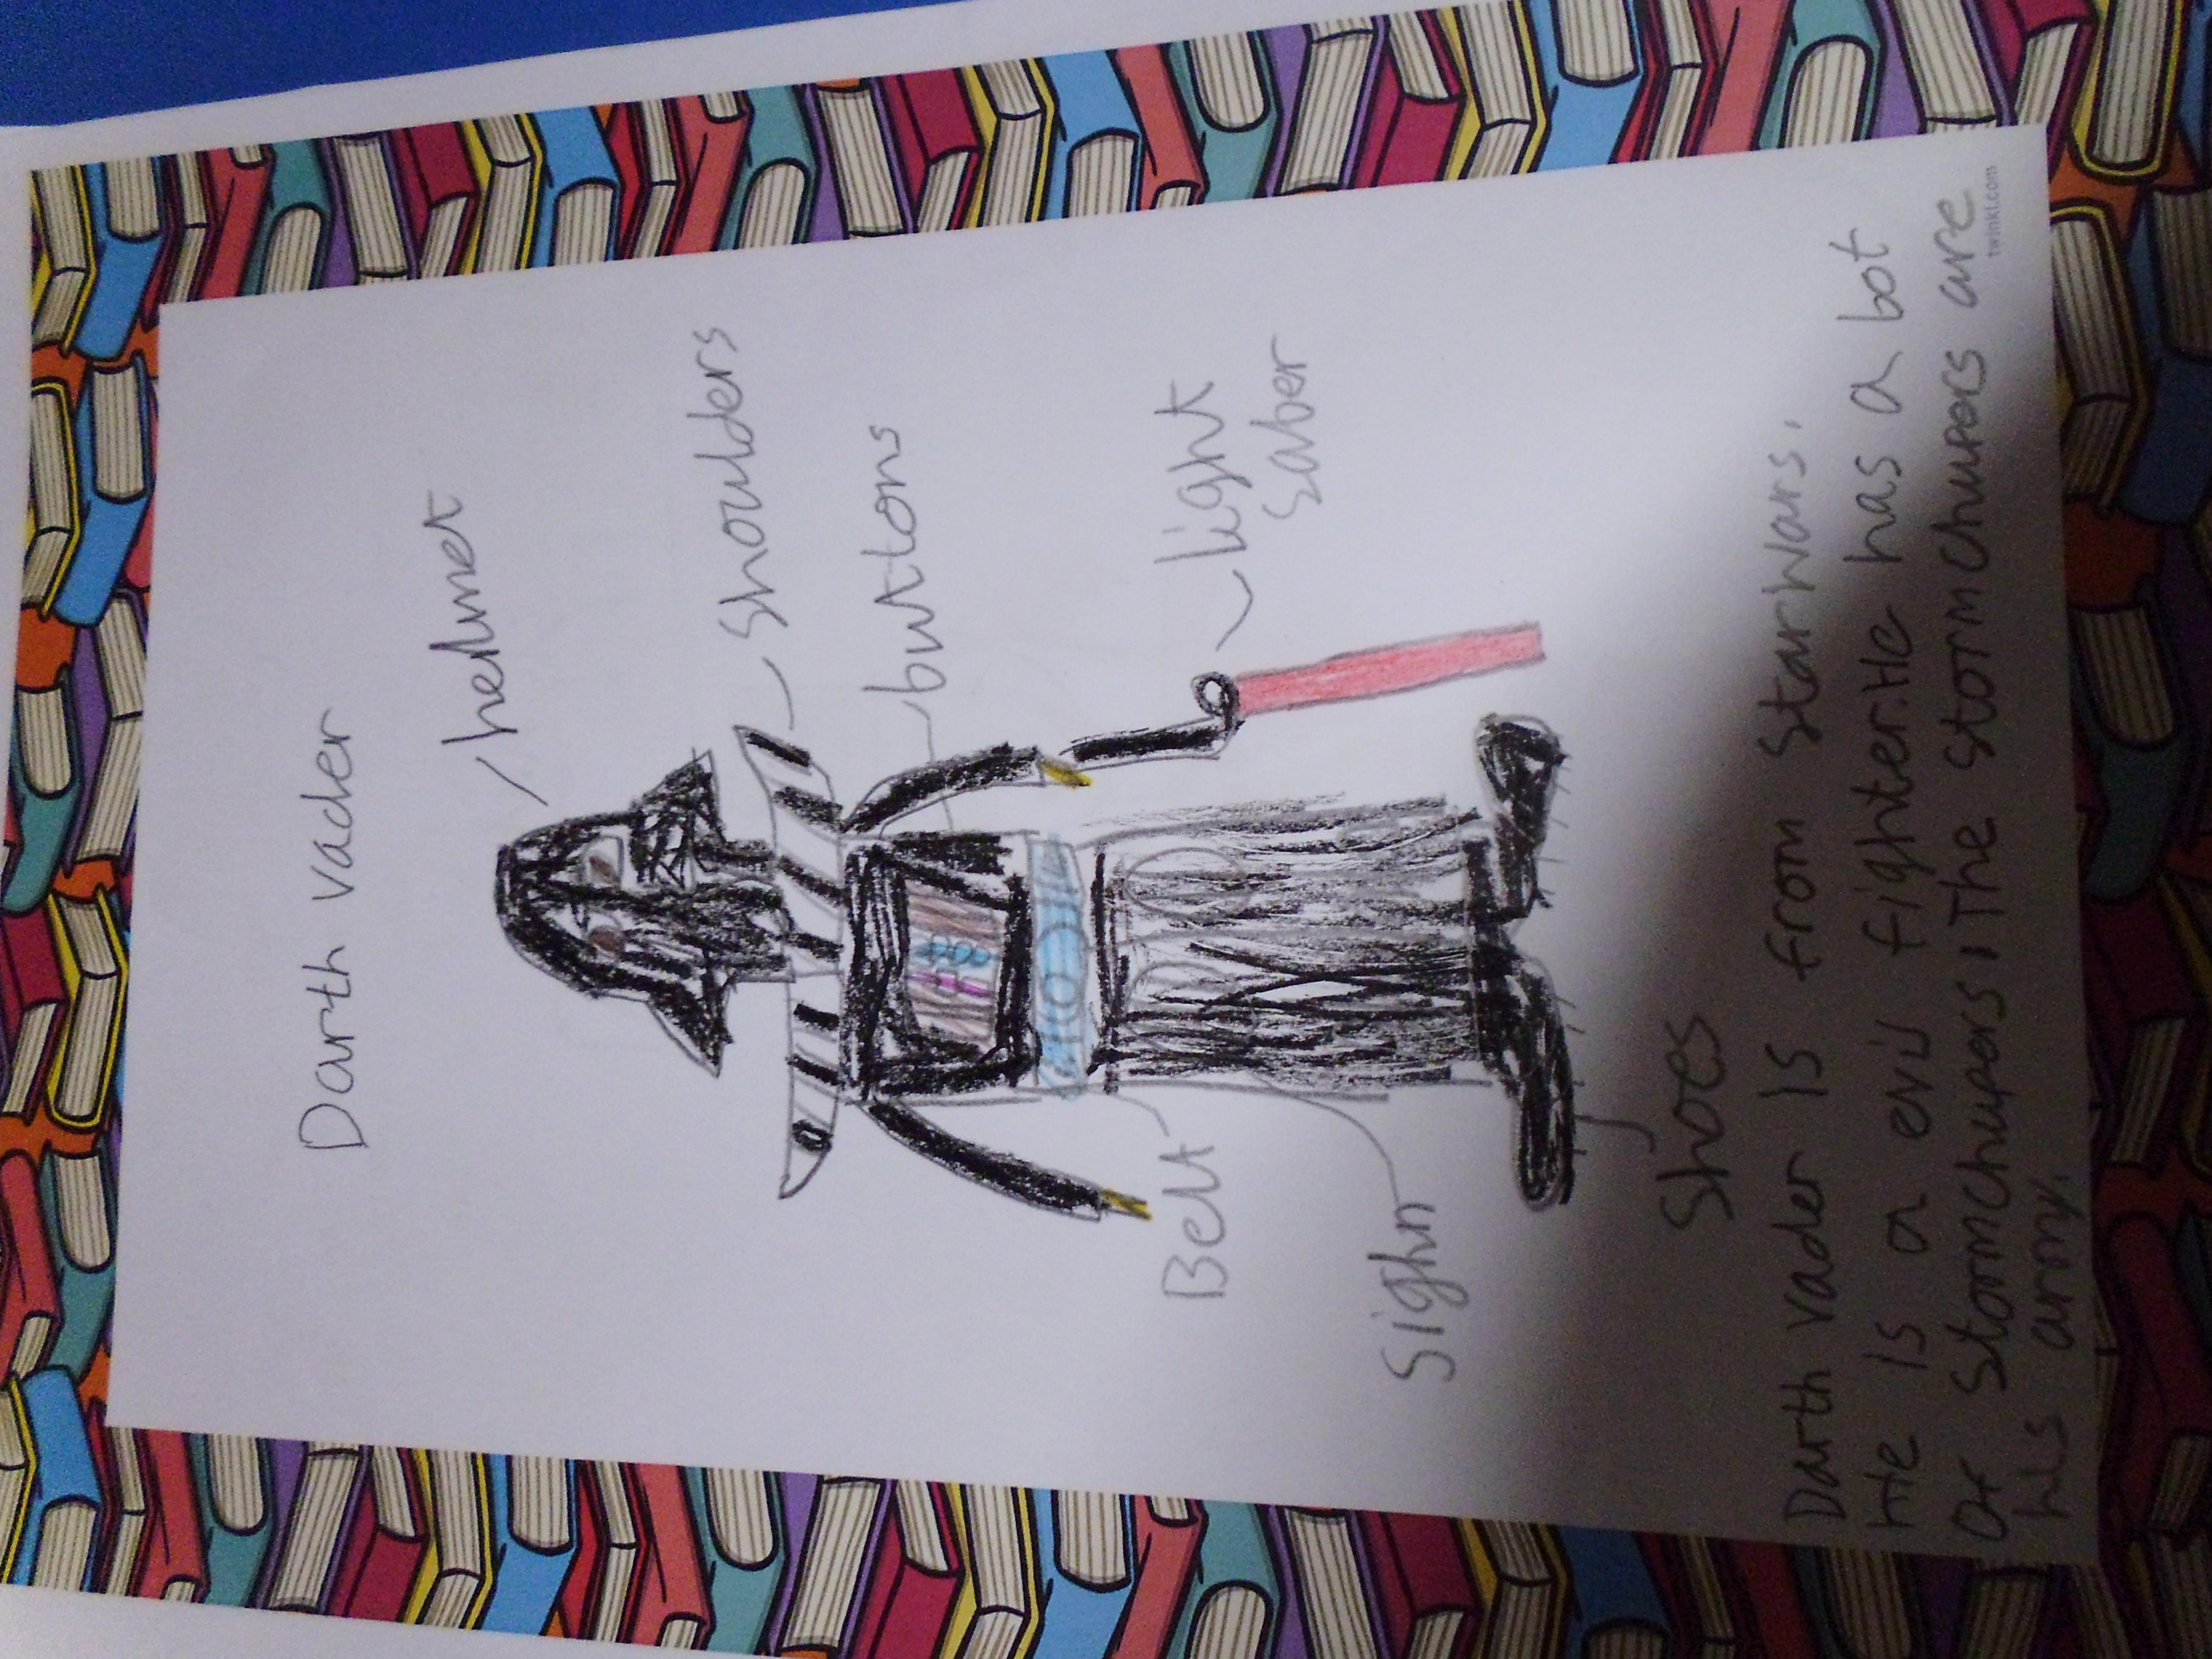 Darth vader
helmet
shoulders
buttons
light
saber
Belt
Sighn
Shoes
Darth vader is from starwars.
He is a evil fighter.He has a bot
of stormchupers.The stormchupers are
his army.
twinkl.com